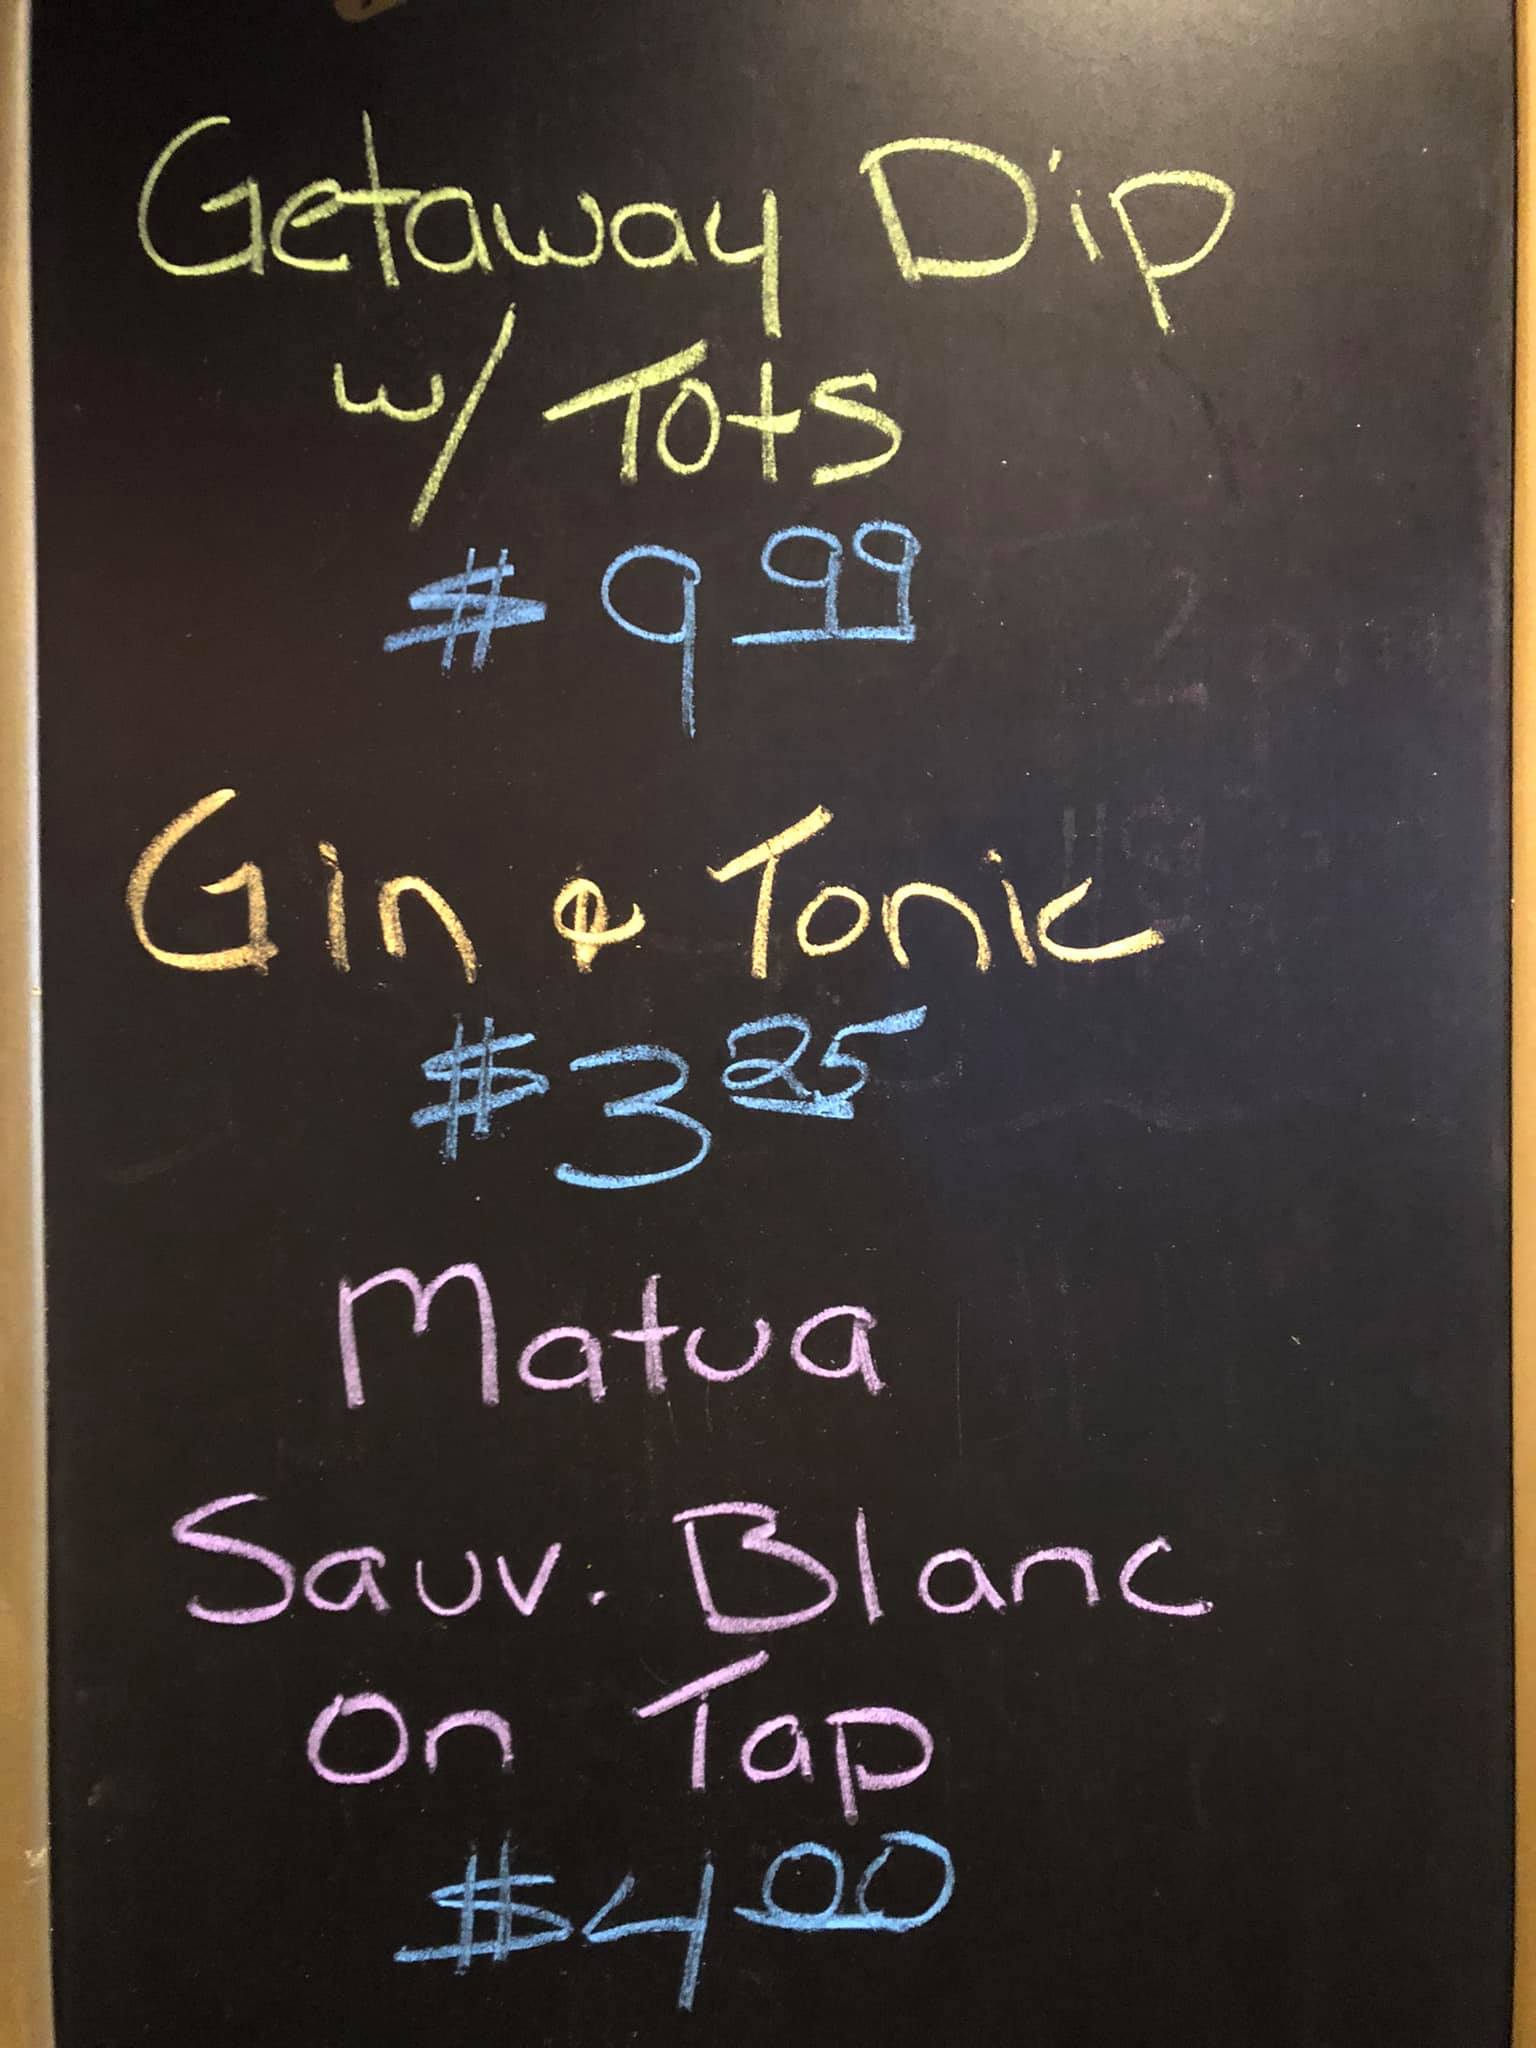 Getaway Dip
w/ Tots
$9.99
Gin & Tonic
$3.25
Matua
Sauv. Blanc
On Tap
$4.00